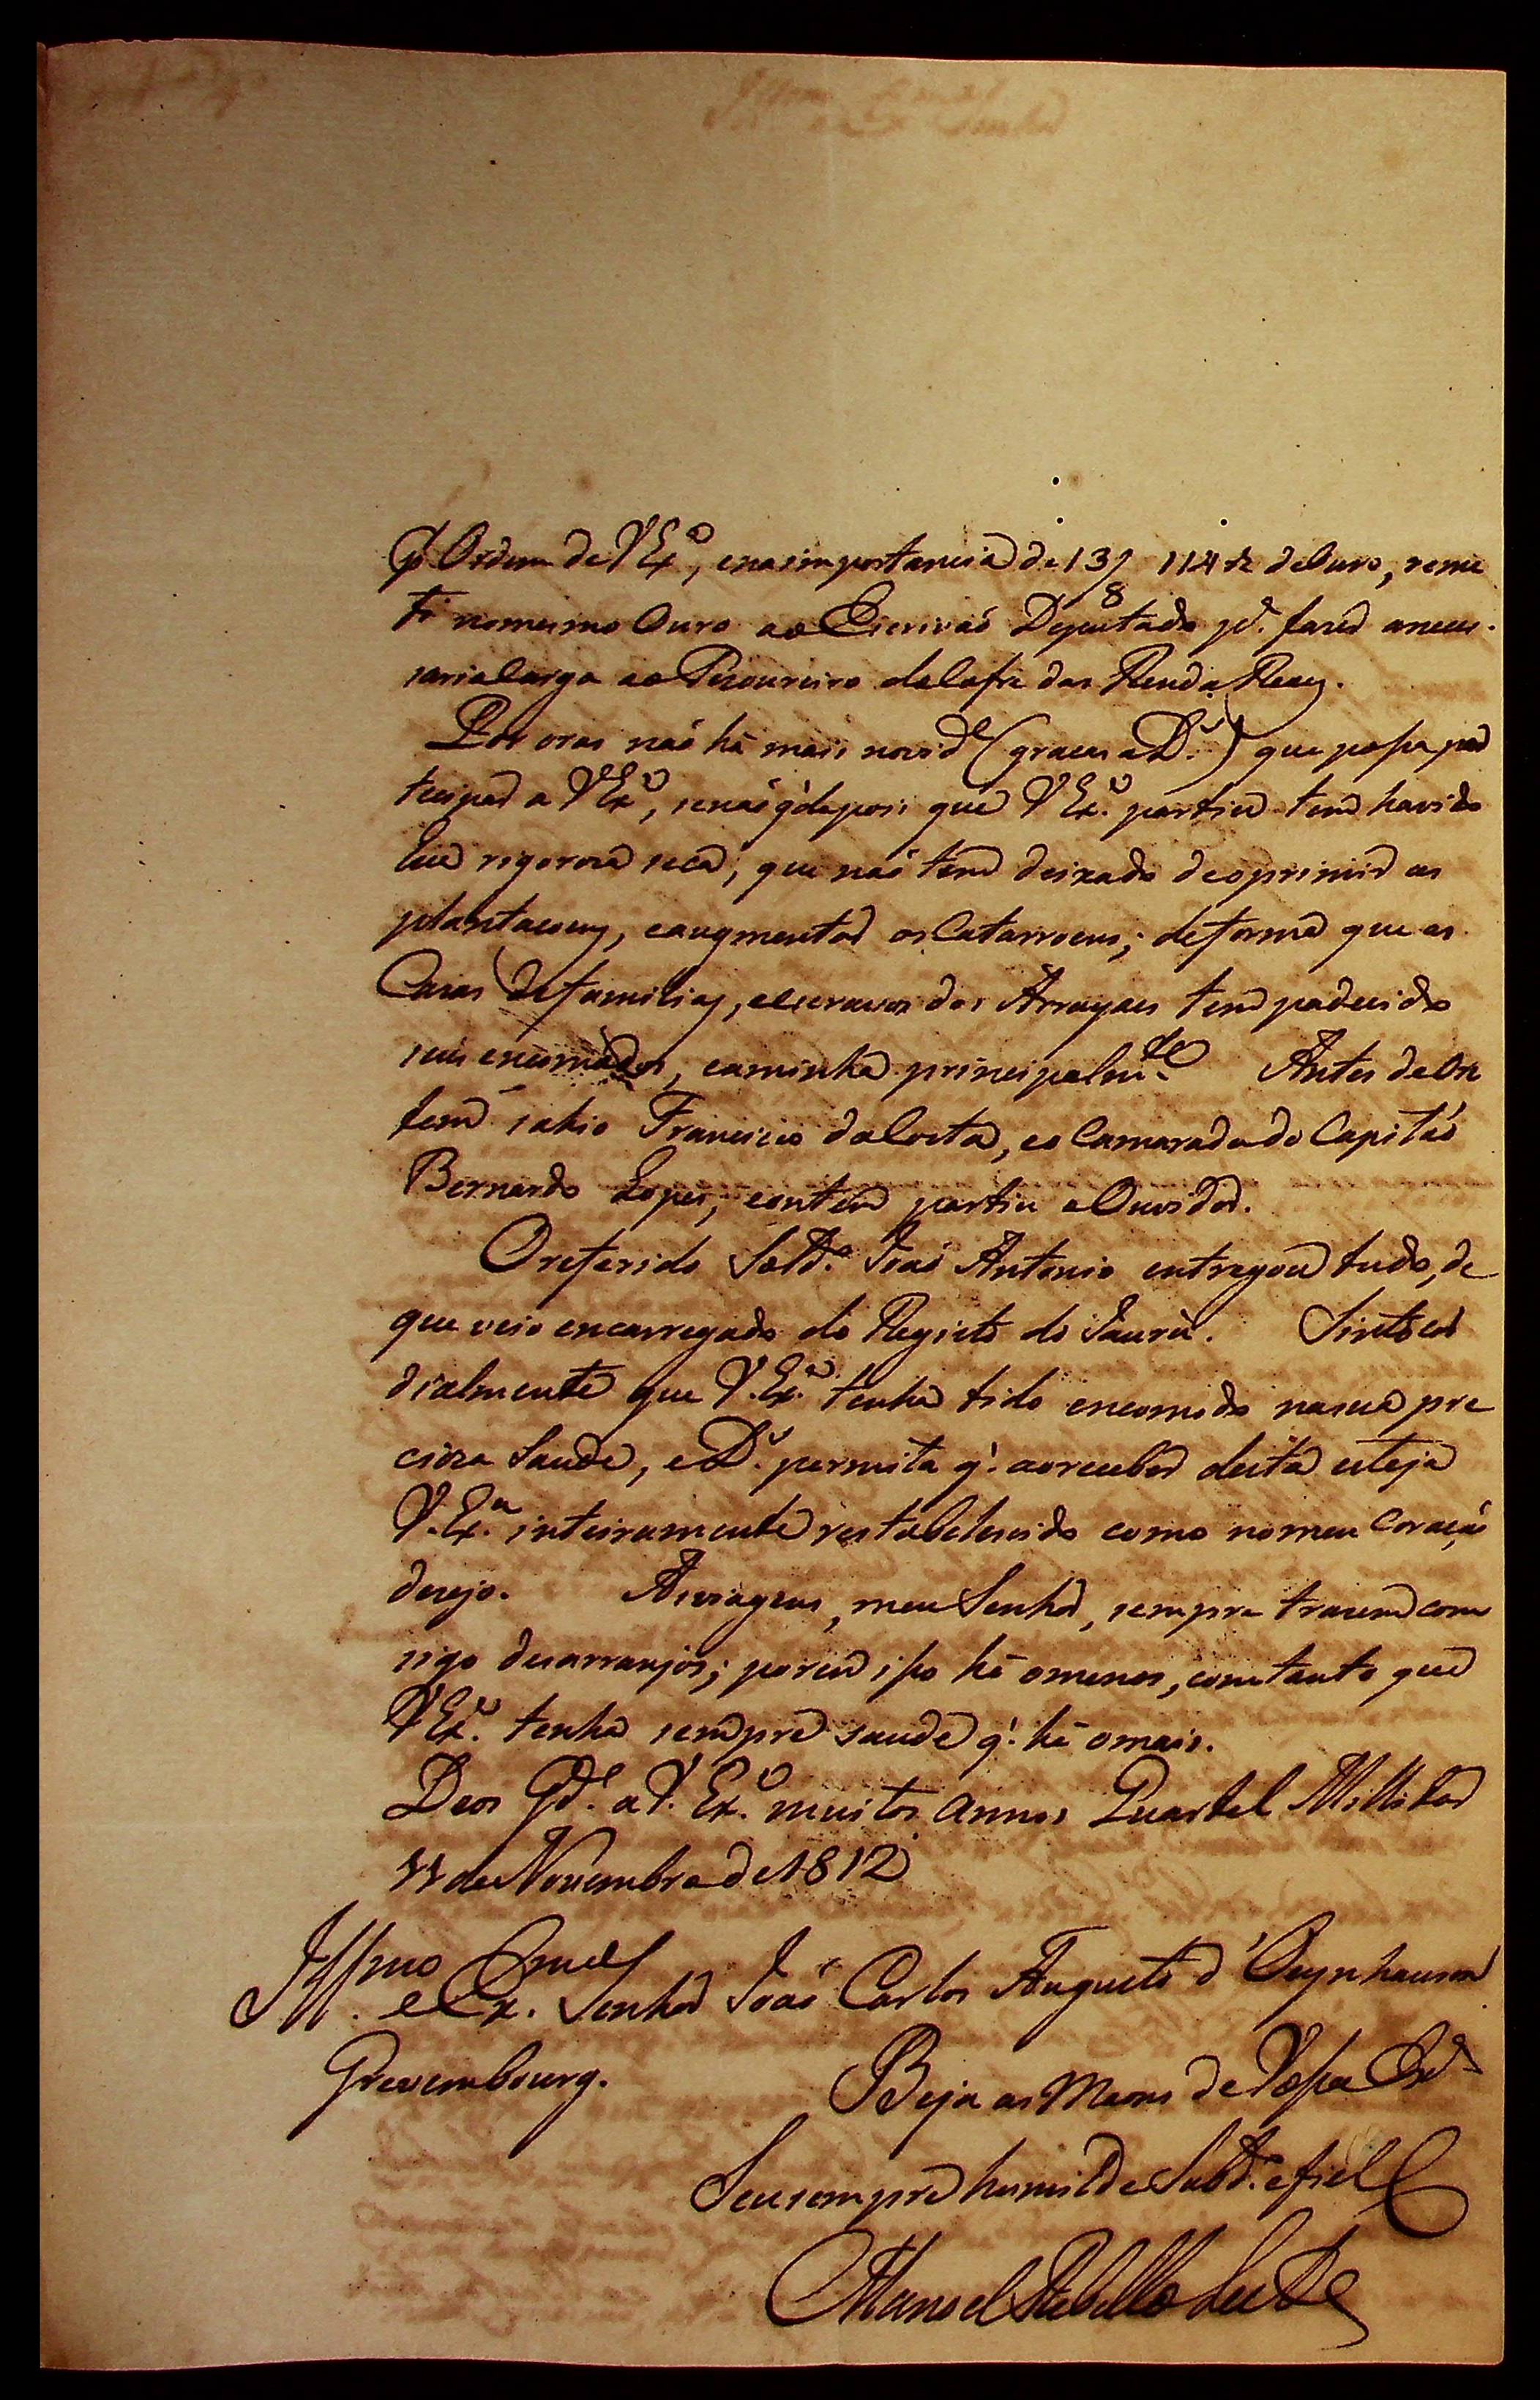 Ordem de V Exª, enaimportancia de 13/8 114 rs deOuro, reme
ti nomesmo Ouro ao Escrivaõ Deputado pª. fazer aneces-
saria Carga ao Thesoureiro do Cofre das Rendas Reaes.
Por oras naõ há mais novidᵉ (gracas a Dˢ.) que possa par
tecipar a V Exª, senaõ q̃ depois que V Exª. partiu tem havido
hua rigoroza seca, que naõ tem deixado deoprimir as
plantacoens, eaugmentar os Catarroens; deforma que as
Cazas de familias, eescravos dos Arrayaes tem padecido
seus encomodos, eaminha principalmᵗᵉ. Antes deOn
tem sahio Francisco daCosta, eo Camarada do Capitaõ
Bernardo Lopes, eontem partiu oOuvidor.
Oreferido Soldº. Joaõ Antonio entregou tudo, de
que veio encarregado do Registo do Jaurú. Sinto cor
dialmente que V. Exª. tenha tido encomodo nasua pre
cioza Saude, e Dˢ. permita q̃. aoreceber desta esteja
V. Exª. inteiramente restabelescido como nomeu Coraçaõ
dezejo. Asviagens, meu Senhor, sempre trazem com
sigo desarranjos; porem isso hé omenos, comtanto que
V Exª. tenha sempre saude q̃. hé omais.
Deos Gᵈᵉ. a V. Exª. muitos annos Quartel Millitar
11 de Novembro de 1812
Illmo e Exmo. Senhor Joaõ Carlos Augusto d'Oeynhausen
Grevembourg.
Beja as Maons de Vossa Exª
Seu sempre humilde Subdº. efiel C
Manoel Rebello Leite